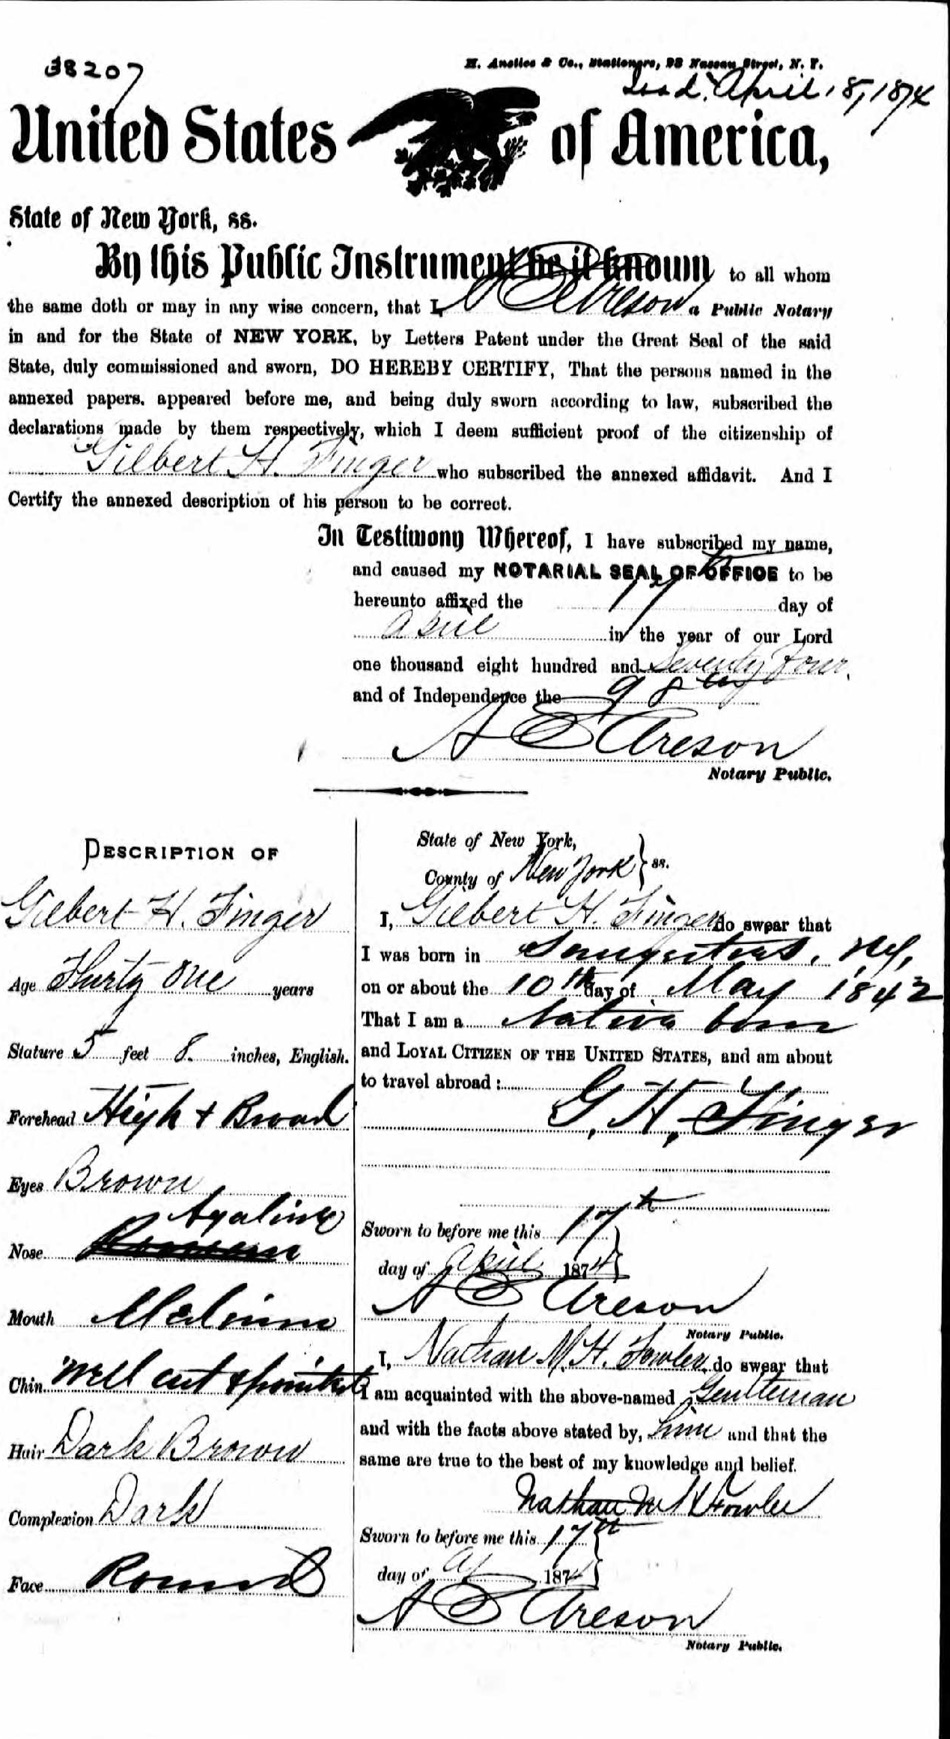 38207
H. Anstice & Co., Stationers, 23 Nassau Street, N. Y.
Issd. April 18, 1874
United States of America,
State of New York, ss.
By this Public Instrument be it known to all whom
the same doth or may in any wise concern, that I, A E Areson a Public Notary
in and for the State of NEW YORK, by Letters Patent under the Great Seal of the said
State, duly commissioned and sworn, DO HEREBY CERTIFY, That the persons named in the
annexed papers, appeared before me, and being duly sworn according to law, subscribed the
declarations made by them respectively, which I deem sufficient proof of the citizenship of
Gilbert H. Finger who subscribed the annexed affidavit. And I
Certify the annexed description of his person to be correct.
In Testimony Whereof, I have subscribed my name,
and caused my NOTARIAL SEAL OF OFFICE to be
hereunto affixed the 17th day of
April in the year of our Lord
one thousand eight hundred and Seventy Four.
and of Independence the 98th
A E Areson
Notary Public.
DESCRIPTION OF
Gilbert H. Finger
Age Thirty One years
Stature 5 feet 8 inches, English.
Forehead High & Broad
Eyes Brown
Aqaline
Nose Roman
Mouth Medium
Chin Well cut & pointed
Hair Dark Brown
Complexion Dark
Face Round
State of New York,
County of New York } ss.
I, Gilbert H. Finger do swear that
I was born in Saugerties, NY,
on or about the 10th day of May 1842
That I am a Native born
and LOYAL CITIZEN OF THE UNITED STATES, and am about
to travel abroad:
G. H. Finger
Sworn to before me this 17th
day of April 1874
A E Areson
Notary Public.
I, Nathan M. H. Fowler do swear that
I am acquainted with the above-named Gentleman
and with the facts above stated by, him and that the
same are true to the best of my knowledge and belief.
Nathan M H Fowler
Sworn to before me this 17th
day of Ap 1874
A E Areson
Notary Public.